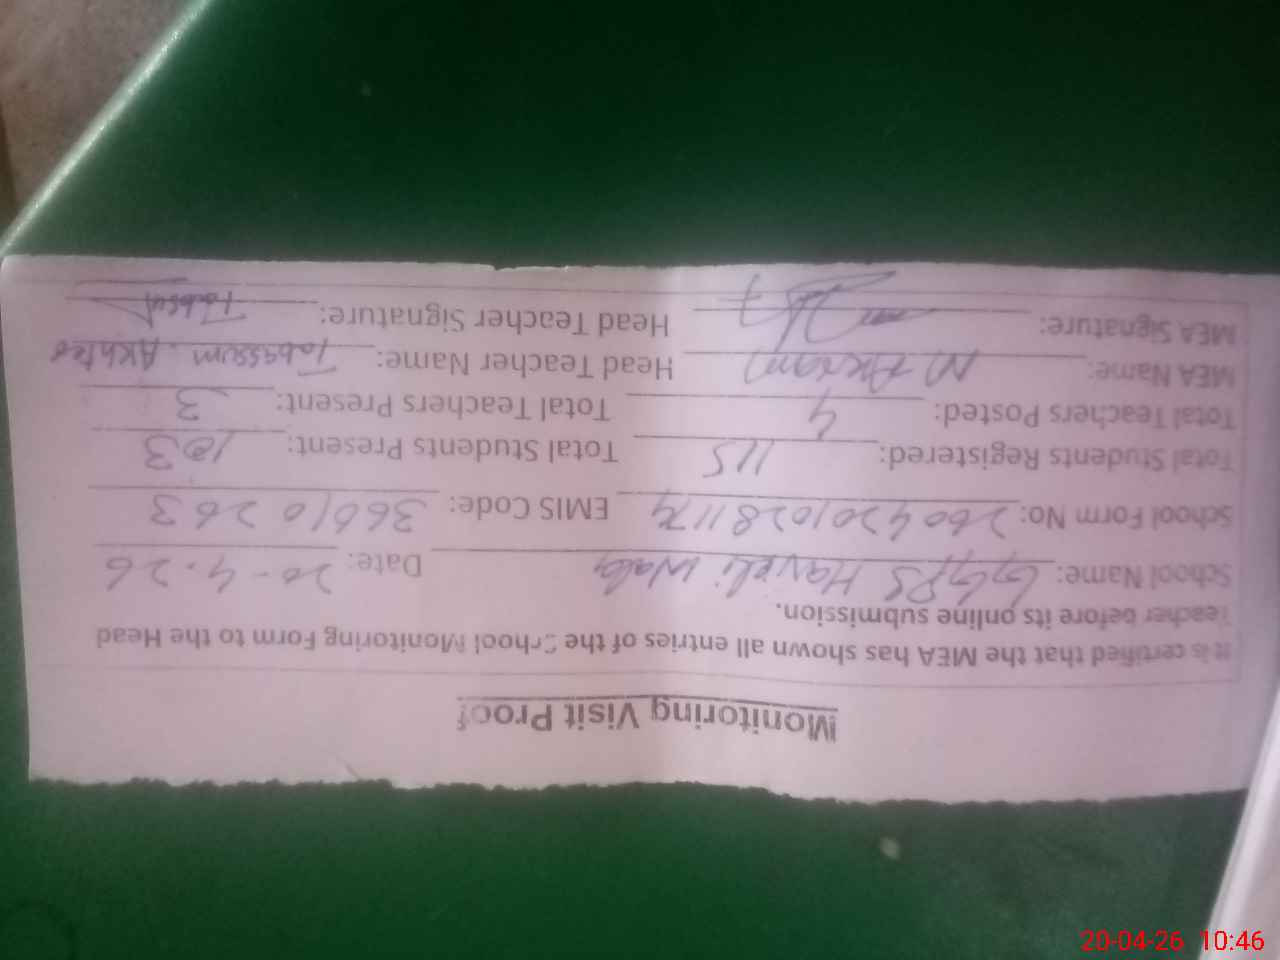 Monitoring Visit Proof
It is certified that the MEA has shown all entries of the School Monitoring Form to the Head
Teacher before its online submission.
School Name: GGPS Haveli Wala Date: 20-4-26
School Form No: 2604201028 1174 EMIS Code: 36610263
Total Students Registered: 115 Total Students Present: 103
Total Teachers Posted: 4 Total Teachers Present: 3
MEA Name: M Akram Head Teacher Name: Tabassum Akhter
MEA Signature: Head Teacher Signature:
20-04-26 10:46